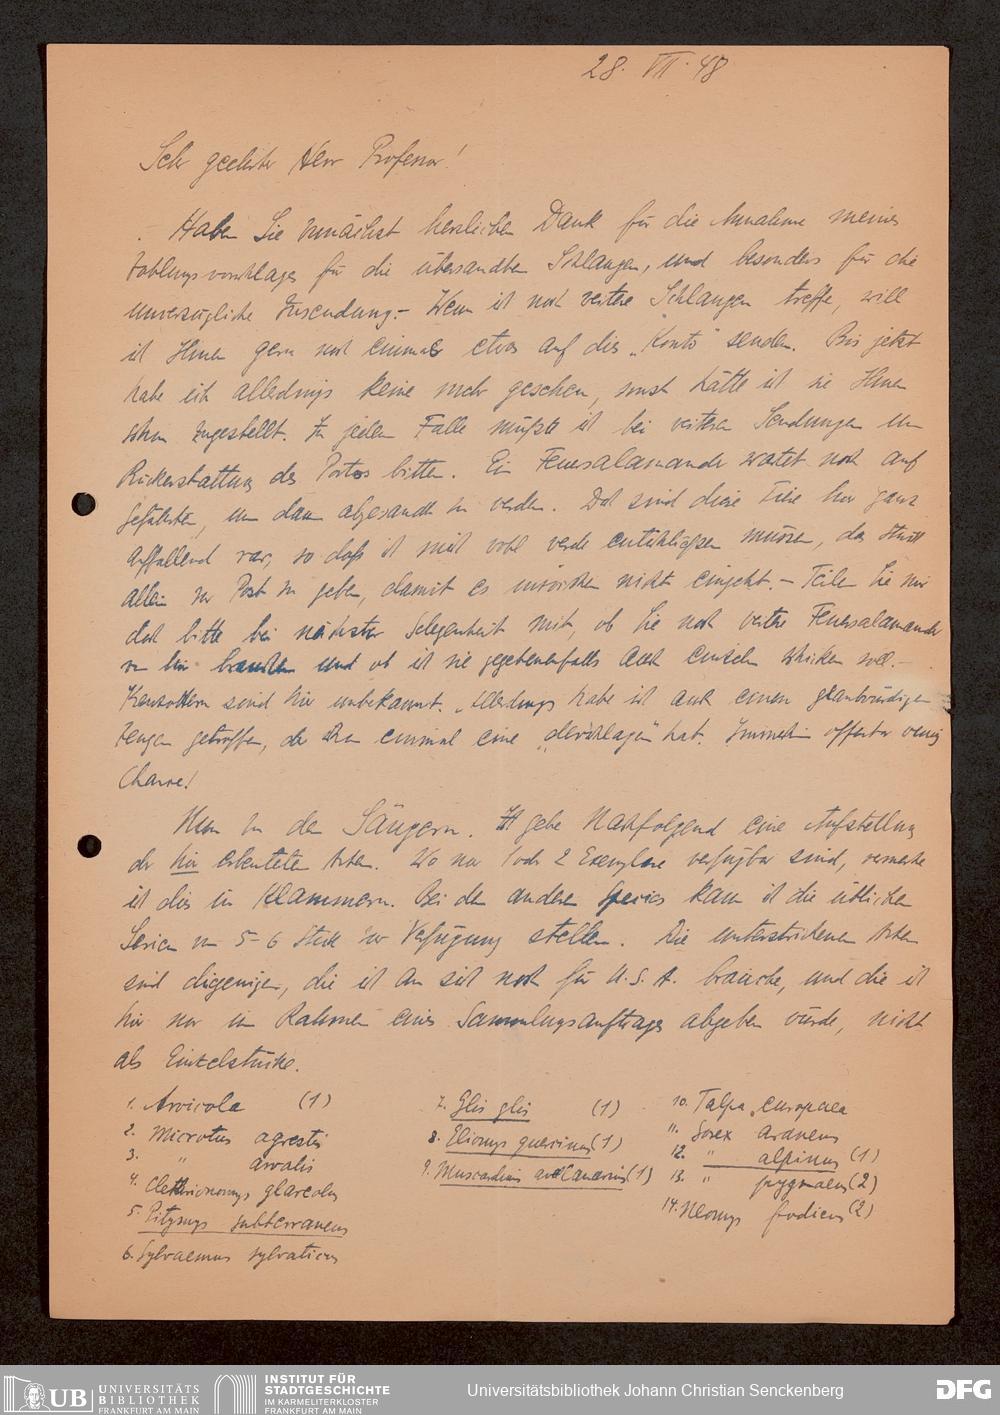 28. VII. 48
Sehr geehrter Herr Professor!
Haben Sie zunächst herzlichen Dank für die Annahme meines
Zahlungsvorschlages für die übersandten Schlangen, und besonders für die
unverzügliche Zusendung. – Wenn ich noch weitere Schlangen treffe, will
ich Ihnen gern noch einmal etwas auf dies „Konto“ senden. Bis jetzt
habe ich allerdings keine mehr gesehen, sonst hätte ich sie Ihnen
schon zugestellt. In jedem Falle müßte ich bei weiteren Sendungen um
Rückerstattung des Portos bitten. Ein Feuersalamander wartet noch auf
Gefährten, um dann abgesandt zu werden. Doch sind diese Tiere hier ganz
auffallend rar, so daß ich mich wohl werde entschließen müssen, das Stück
allein zur Post zu geben, damit es inzwischen nicht eingeht. – Teilen Sie mir
doch bitte bei nächster Gelegenheit mit, ob Sie noch weitere Feuersalamander
von hier brauchen und ob ich sie gegebenenfalls auch einzeln schicken soll. –
Kreuzottern sind hier unbekannt. Allerdings habe ich auch einen glaubwürdigen
Zeugen getroffen, der schon einmal eine „derschlagen“ hat. Immerhin offenbar wenig
Chance!
Nun zu den Säugern. Ich gebe nachfolgend eine Aufstellung
der hier erbeuteten Arten. Wo nur 1 oder 2 Exemplare verfügbar sind, vermerke
ich dies in Klammern. Bei den anderen Species kann ich die üblichen
Serien von 5-6 Stück zur Verfügung stellen. Die unterstrichenen Arten
sind diejenigen, die ich an sich noch für U.S.A. brauche, und die ich
hier nur im Rahmen eines Sammlungsauftrages abgeben würde, nicht
als Einzelstücke.
1. Arvicola (1)
2. Microtus agrestis
3. " arvalis
4. Clethrionomys glareolus
5. Pitymys subterraneus
6. Sylvaemus sylvaticus
7. Glis glis (1)
8. Eliomys quercinus (1)
9. Muscardinus avellanarius (1)
10. Talpa europaea
11. Sorex araneus
12. " alpinus (1)
13. " pygmaeus (2)
14. Neomys fodiens (2)
UB UNIVERSITÄTS
BIBLIOTHEK
FRANKFURT AM MAIN
INSTITUT FÜR
STADTGESCHICHTE
IM KARMELITERKLOSTER
FRANKFURT AM MAIN
Universitätsbibliothek Johann Christian Senckenberg
DFG